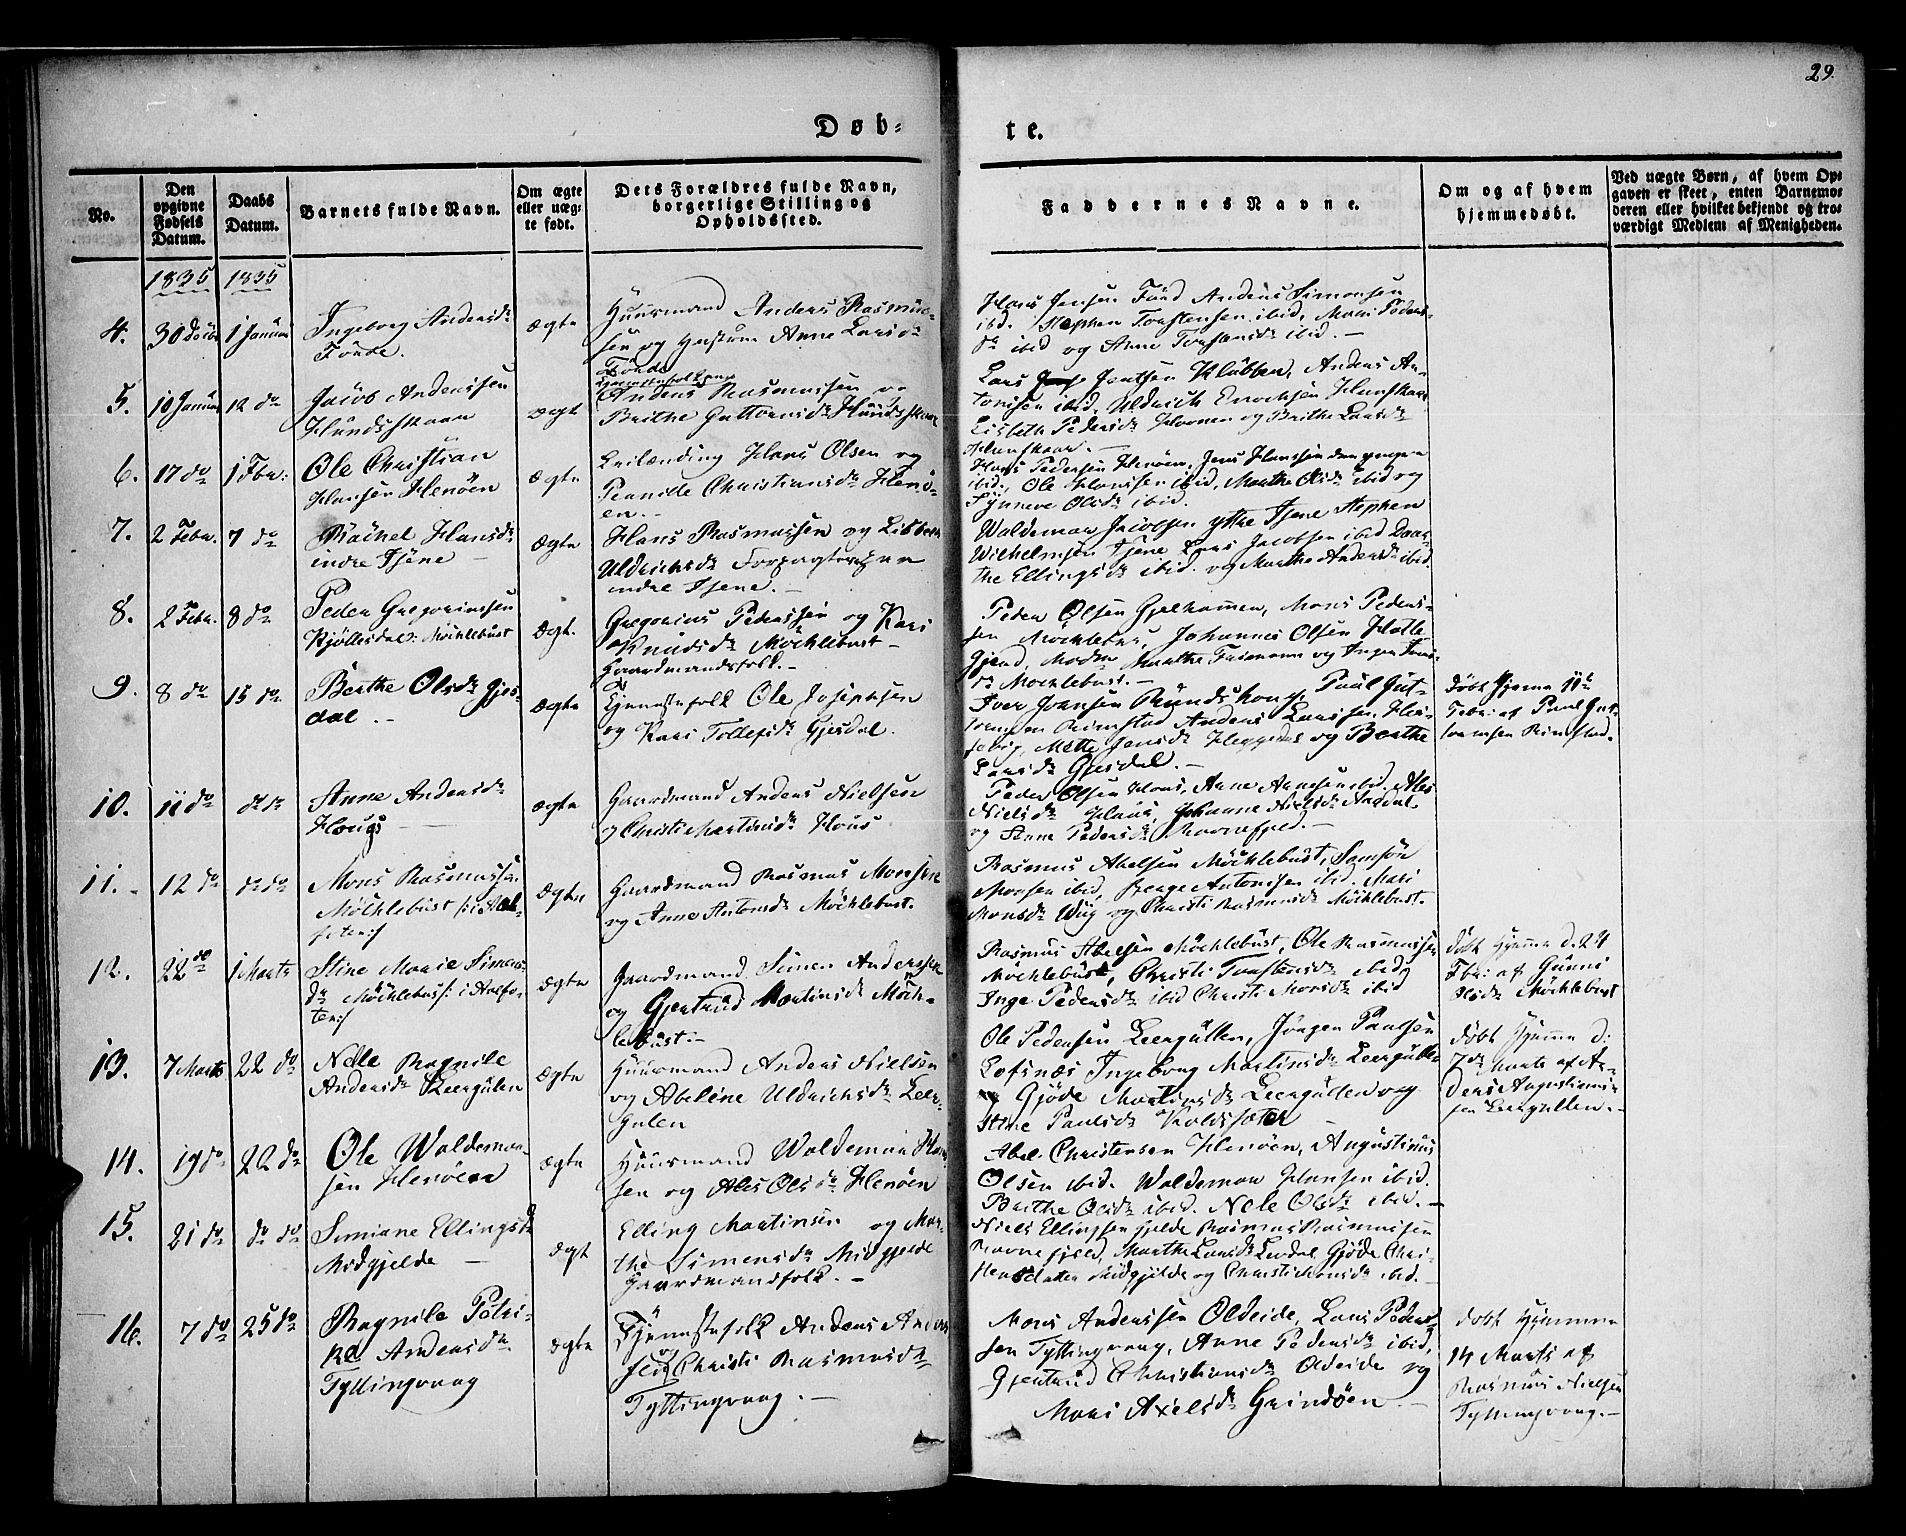 29.
Døb-
te.
No.
Den opgivne Fødsels Datum.
Daabs Datum.
Barnets fulde Navn.
Om ægte eller uægte født.
Dets Forældres fulde Navn, borgerlige Stilling og Opholdssted.
Faddernes Navne.
Om og af hvem hjemmedøbt.
Ved uægte Børn, af hvem Opgaven er skeet, enten Barnemoderen eller hvilket bekjendt og troværdigt Medlem af Menigheden.
1835 1835
4. 30 1 Januar
Ingeborg Andersdr
Førde.
ægte
Huusmand Anders Rasmus-
sen og Hustrue Anne Larsdr
Førde
Hans Jensen Förd Anders Simonsen
ibid. Stephen Torstensen ibid, Mari Peders-
dr ibid og Anne Torstensdr ibid. —
5. 10 Januar 12 do
Jacob Anderssen
Hundsskaar
ægt
Anders Rasmussen og
Brithe Guttormsdr Hundsskaar
Lars Jentsen Klubben, Anders An-
tonisen ibid, Uldrich Enochsen Hunskaar
Lisbeth Pedersdr og Brithe Larsdr
Hunskaar. —
6. 17 do 1 Febr:
Ole Christian
Hansen Henöen
ægte
Leilænding Hans Olsen og
Pernille Christiansdr Henö-
en. —
Hans Pedersen Henöen, Jens Hanssen den yngre
ibid, Ole Hansen ibid, Marthe Olsdr ibid og
Synneve Olsdr ibid.
7. 2 Febr. 7 do
Rachel Hansdr
indre Hjene —
ægte
Hans Rasmussen og Lisbeth
Uldrichsdr
indre Hjene. —
Waldemar Jacobsen ytre Hjene Stephen
Wilhelmsen Hjene Lars Jacobsen ibid Dor-
the Ellingsdr ibid. og Marthe Andersdr ibid
8. 2 Febr. 8 do
Peder Gregoriussen
Kjøllesdal: Möchlebust
Ægt.
Gregorius Pederssen og Kari
Knudsdr Möchlebust —
Gaardmandsfolk. —
Peder Olsen Gjelhammer, Mons Peders-
sen Möchlebust, Johannes Olsen Hatle-
gjerd, Marthe og Inger
dr Mochlebust. —
9. 8 do 15 do
Berthe Olsdr Gjes-
dal. —
Ægte
Tjenestefolk Ole Josephsen
og Kari Tollefsdr Gjesdal.
Iver Joensen Paul Gut-
tormsen Rimstad Anders Larssen
Mette Jensdr Heggedal og Berthe
Larsdr Gjesdal. —
Döbt Hjemme 11te
Febr: af Paul Gut-
tormsen Rimstad.
10. 11 do dodo
Anne Andersdr
Hougs —
ægte
Gaardmand Anders Nielsen
og Christi Martinsdr Hous
Peder Olsen Hous, Arne ibid. Ales
Nielsdr Hous, Johanne Nielsdr Aardal
og Anne Pedersdr Ravnefjeld. —
11. — 12 do dodo
Mons Rasmussen
Möchlebust /: i Aal-
foten:/
ægte
Gaardmand Rasmus Monsen
og Anne Antonsdr Möchlebust.
Rasmus Abelsen Möchlebust, Samson
Monsen ibid, Antonisen ibid. Mari
Monsdr Wiig og Christi Rasmusdr Möchlebust.
12. 22 do 1 Marts
Stine Marie Simens-
dr Möchlebust /: i Aalfo-
ten:/
ægte
Gaardmand Simen Anderssen
og Gjertrud Martinsdr Möch-
lebust. —
Rasmus Abelsen Möchlebust, Ole Rasmussen
Möchlebust, Christi Torstensdr ibid
Inge Pedersdr ibid Christi Monsdr ibid
Döbt Hjemme d. 24
Febr: af Gunni
Olsdr Möchlebust
13. 7 Marts 22 do
Nele Ragnile
Andersdr Leergulen
ægte
Huusmand Anders Nielsen
og Abeline Uldrichsdr Leer-
gulen
Ole Pedersen Leergullen, Jörgen Paulsen
Lofsnæs Ingeborg Martinsdr Leergullen
Gjöde Martinsdr Leergullen og
Stine Paulsdr
döbt Hjemme d:
7de Marts af An-
ders Augustinus-
sen Leergullen. —
14. 19 do 22 do
Ole Waldemar-
sen Henöen
ægte
Huusmand Waldemar Han-
sen og Ales Olsdr Henöen
Abel Christensen Henöen, Augustinus
Olsen ibid. Waldemar Hansen ibid.
Brithe Olsdr ibid. Nele Olsdr ibid. —
15. 21 do do do
Simiane Ellingsdr
Midgjelde —
ægt
Elling Martinsen og Mar-
the Simensdr Midgjelde
Gaardmandsfolk. —
Niels Ellingsen Gjelde Rasmus Rasmussen
Ravnefjeld, Marthe Larsdr Levdal, Gjöde Chri-
stensdatter Midgjelde og Christi Monsdr ibid. —
16. 7 do 25 do
Ragnile Petri-
ka Andersdr
Tyttingvaag
ægte
Tjenestefolk Anders Anders-
sen og Christi Rasmusdr
Tyttingvaag. —
Mons Anderssen Oldeide, Lars Peders-
sen Tyttingvaag, Anne Pedersdr ibid,
Gjertrud Christiansdr Oldeide og
Mari Axelsdr Grindöen. —
döbt Hjemme
14 Marts af
Rasmus Nielsen
Tyttingvaag. —